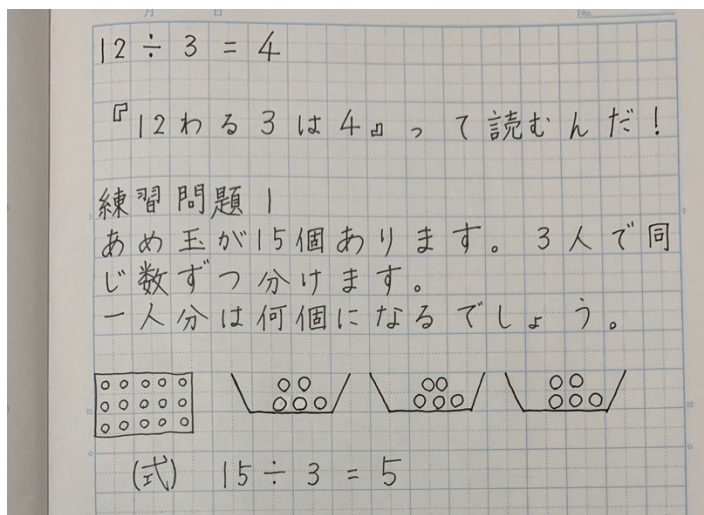 12÷3=4
『12わる3は4』って読むんだ!
練習問題1
あめ玉が15個あります。3人で同
じ数ずつ分けます。
一人分は何個になるでしょう。
(式) 15÷3=5